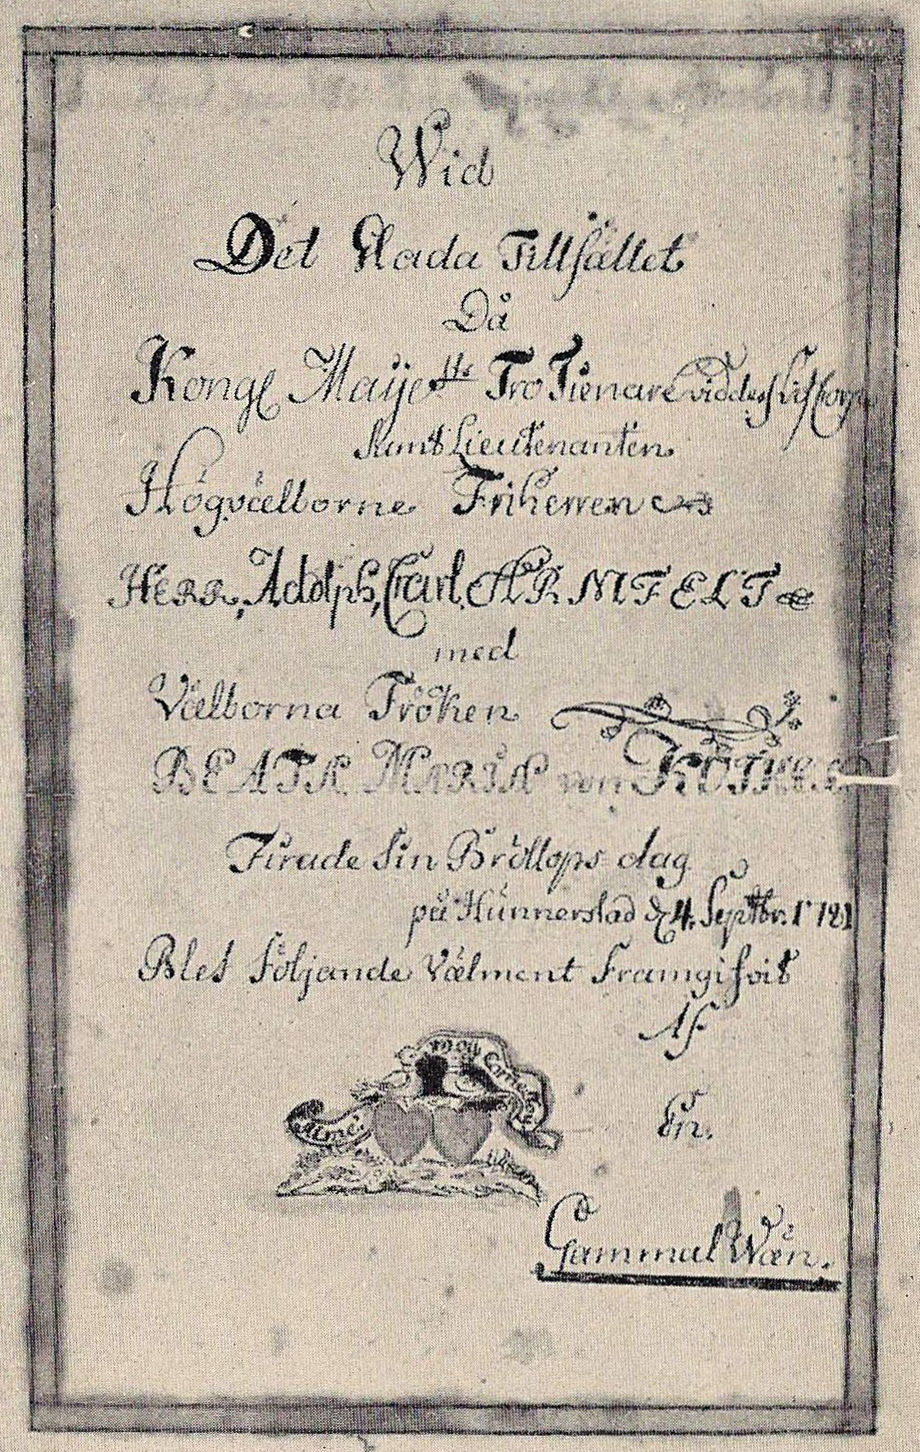 Wid
Det Glada Tillfället
Då
Kongl Maÿe:tts Tro Tienare vid dess Lif Corps
Samt Lieutenanten
Högvälborne Friherren
HERR, Adolph, Carl, ARMFELT
med
Välborna Fröken
BEATA MARIA von KÖTHEN
Firade Sin Bröllops dag
på Hunnerstad d. 4. Septbr. 1781
Blef Följande Välment Framgifvit
Af
En.
Gammal Wän.